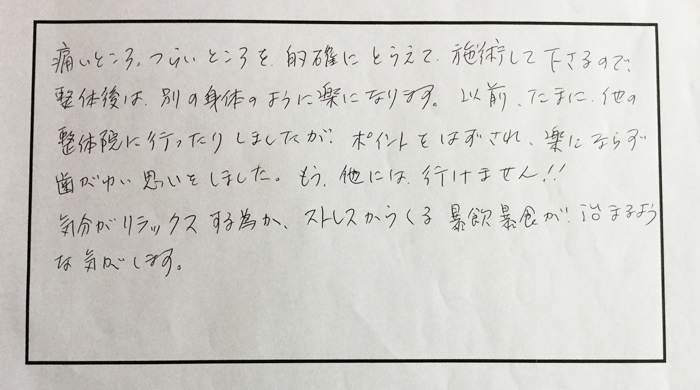 痛いところ、つらいところを、的確にとらえて、施術して下さるので、
整体後は、別の身体のように楽になります。以前、たまに、他の
整体院に行ったりしましたが、ポイントをはずされ、楽にならず
歯がゆい思いをしました。もう、他には、行けません!!
気分がリラックスする為か、ストレスからくる暴飲暴食が、治まるよう
な気がします。